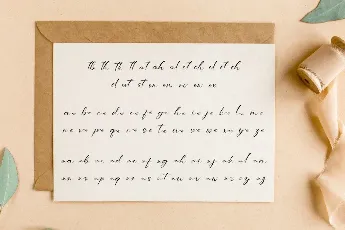 tb th tk tl at ah al et eh el it
ut st
aa ba ca da ea fa ga ha ia ja ka la ma
na oa pa qa ra sa ta ua va wa xa ya za
aa ab ac ad ae af ag ah ai aj ak al am
an ao ap aq ar as at au av aw ax ay az